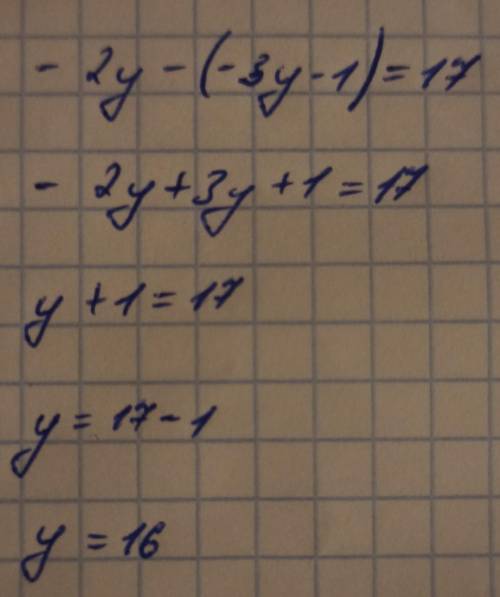 - 2y - (-3y - 1) = 17
- 2y + 3y + 1 = 17
y + 1 = 17
y = 17 - 1
y = 16